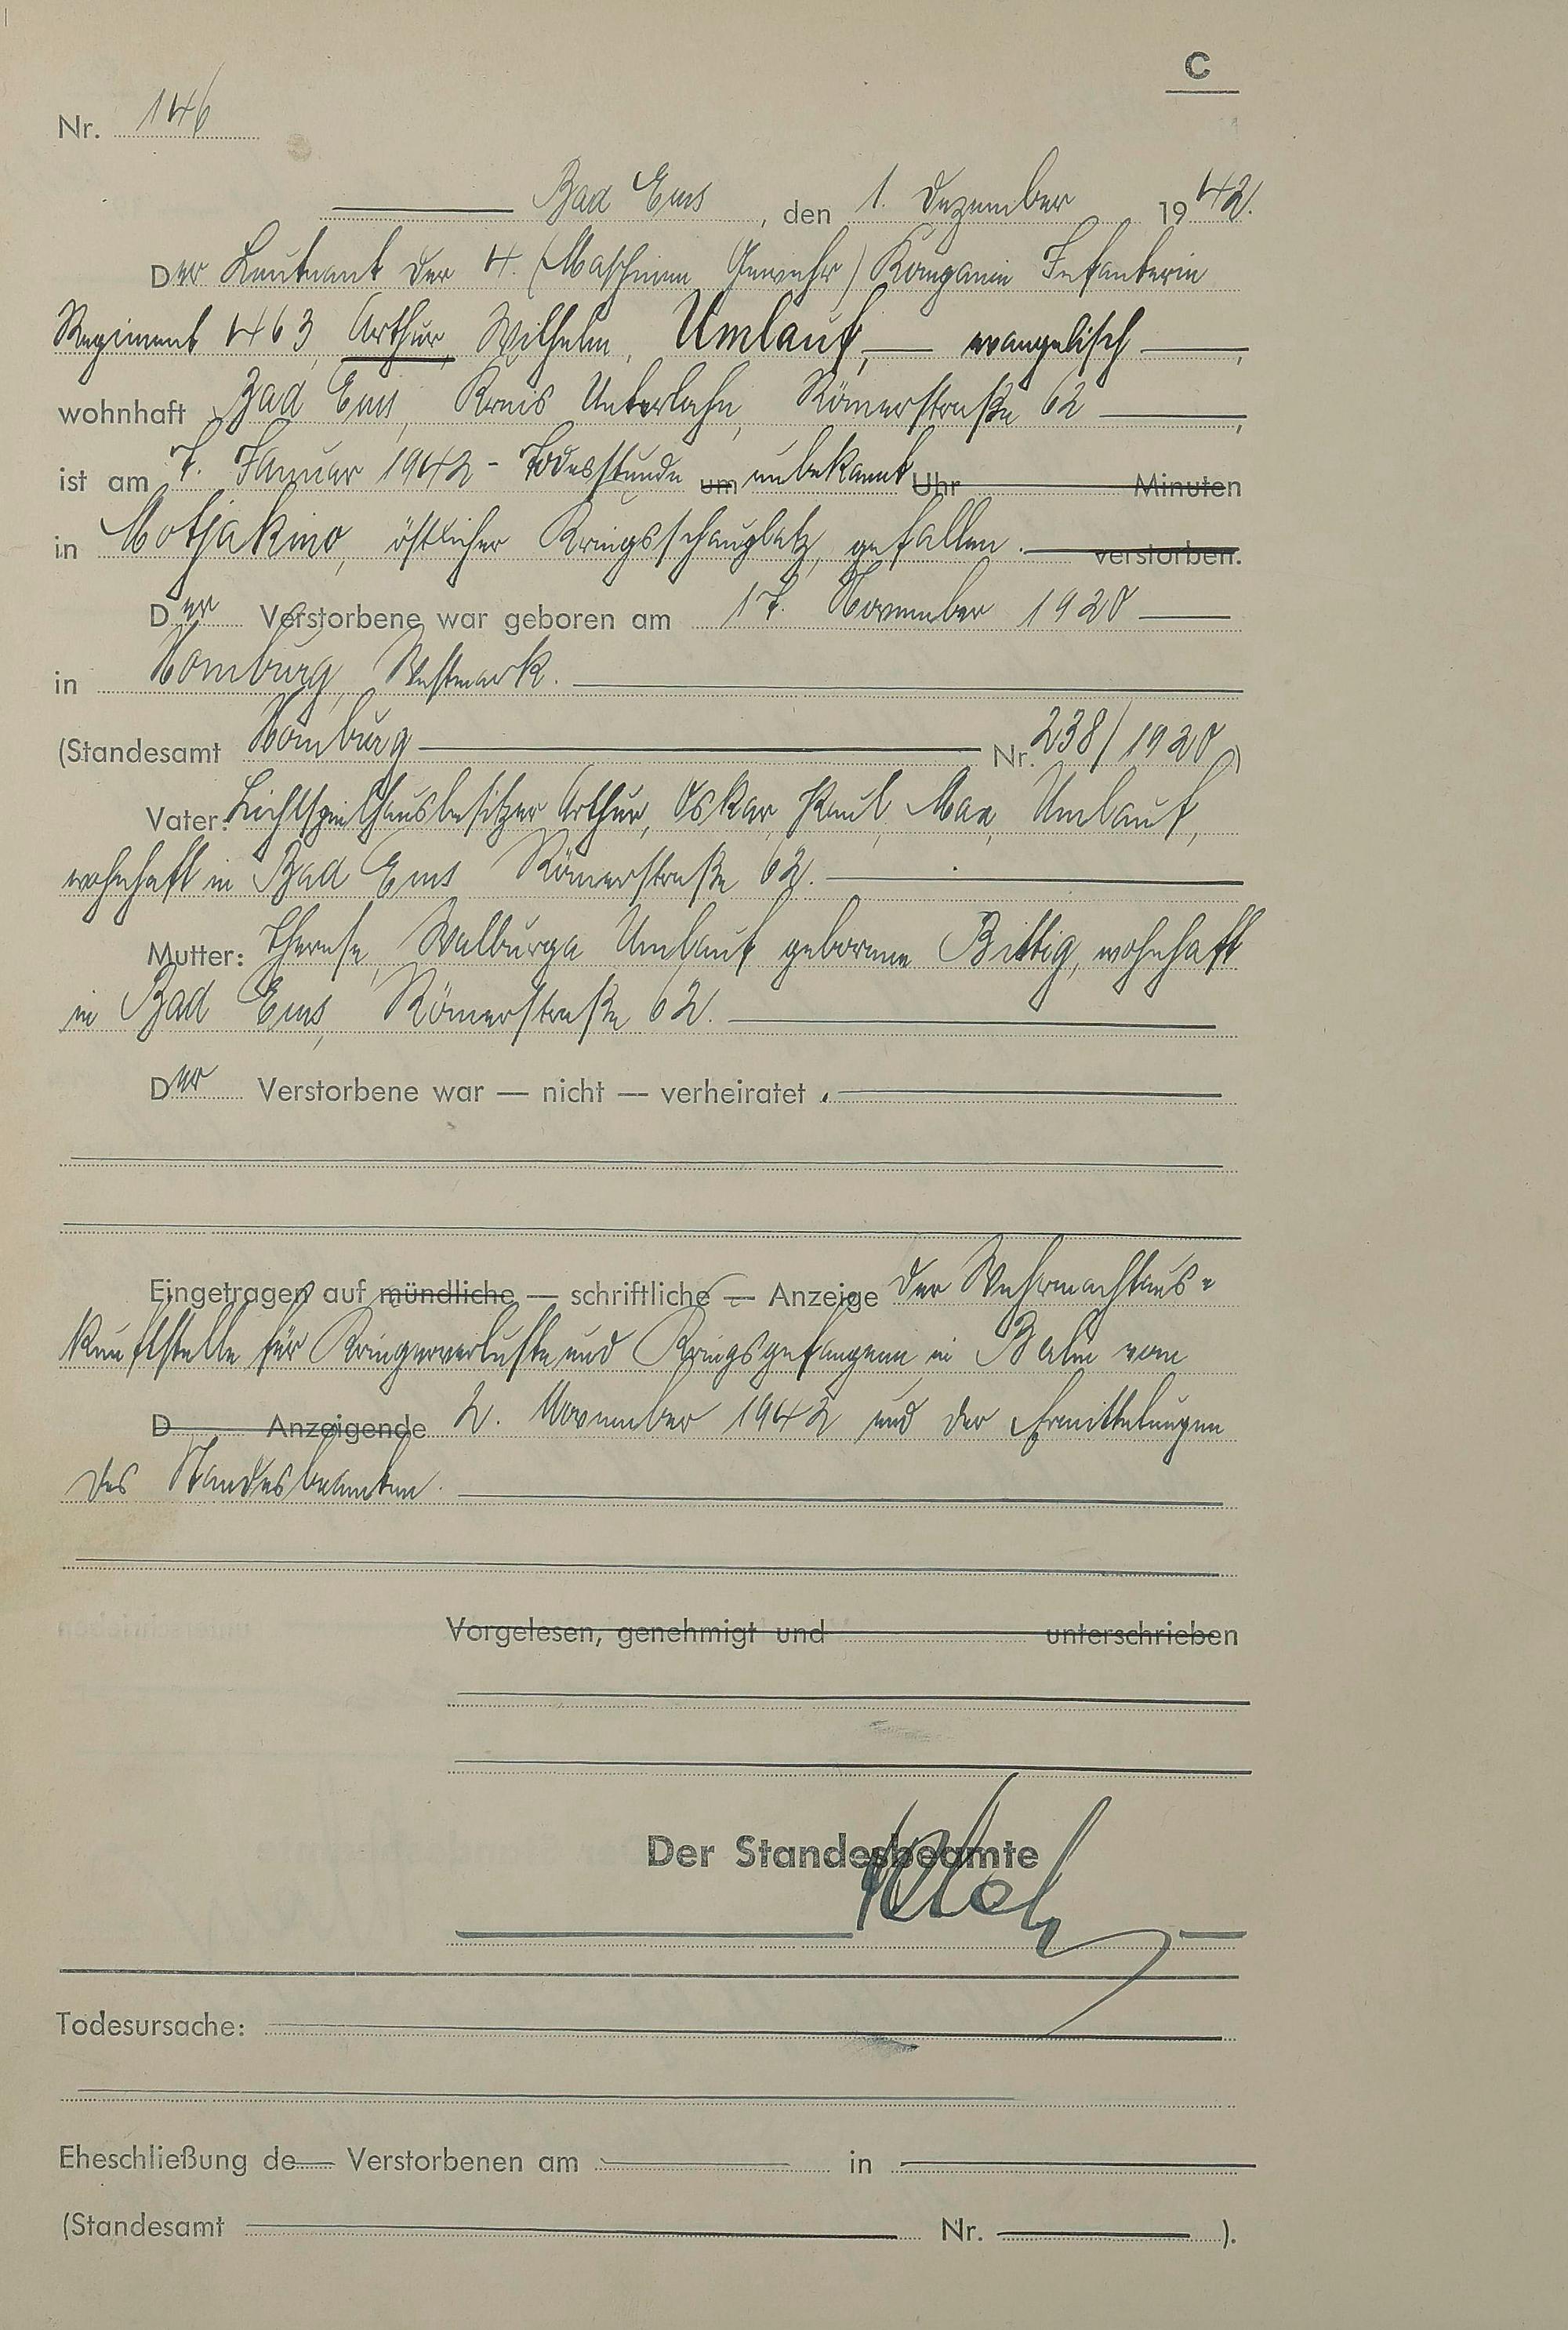 C
Nr. 146
Bad Ems, den 1. Dezember 1942.
Der Leutnant der 4. (Maschinen Gewehr) Kompanie Infanterie
Regiment 463, Arthur, Wilhelm, Umlauf, — evangelisch —,
wohnhaft Bad Ems, Kreis Unterlahn, Römerstraße 62 —,
ist am 7. Januar 1942 - Todesstunde um unbekannt Uhr Minuten
in Motjakino, östlicher Kriegsschauplatz, gefallen. verstorben.
Der Verstorbene war geboren am 17. November 1920 —
in Homburg, Westmark.
(Standesamt Homburg — Nr. 238/1920)
Vater: Lichtspielhausbesitzer Arthur, Oskar, Paul, Max, Umlauf,
wohnhaft in Bad Ems Römerstraße 62.
Mutter: Therese, Walburga Umlauf geborene Bittig, wohnhaft
in Bad Ems, Römerstraße 62.
Der Verstorbene war — nicht — verheiratet.
Eingetragen auf mündliche — schriftliche — Anzeige der Wehrmachtaus=
kunftstelle für Kriegerverluste und Kriegsgefangene in Berlin vom
D Anzeigende 2. November 1942 und der Ermittelungen
des Standesbeamten.
Vorgelesen, genehmigt und unterschrieben
Der Standesbeamte
Todesursache:
Eheschließung de Verstorbenen am in
(Standesamt Nr. ).